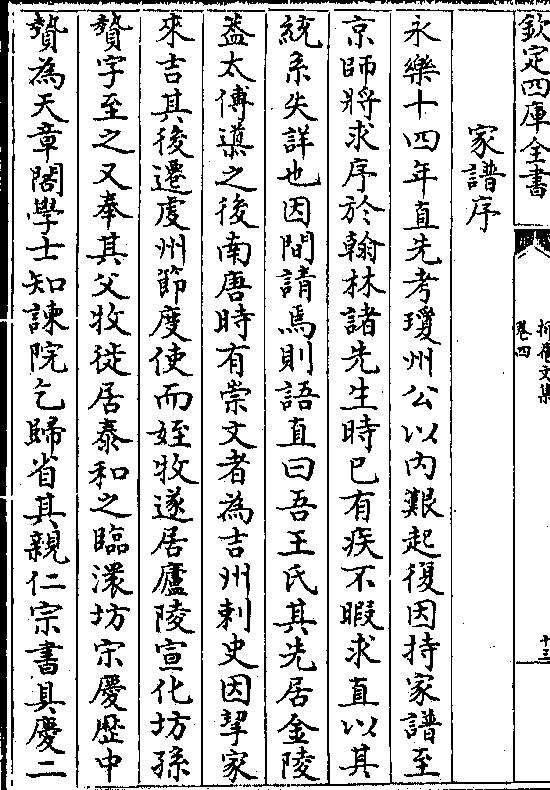 欽定四庫全書
抑菴文集
卷四
十三
家譜序
永樂十四年直先考瓊州公以内艱起復因持家譜至
京師將求序於翰林諸先生時已有疾不暇求直以其
統系失詳也因間請焉則語直曰吾王氏其先居金陵
盖太傅導之後南唐時有崇文者為吉州刺史因挈家
來吉其後遷虔州節度使而姪牧遂居廬陵宣化坊孫
贄字至之又奉其父牧徙居泰和之臨㵎坊宋慶歴中
贄為天章閣學士知諫院乞歸省其親仁宗書具慶二